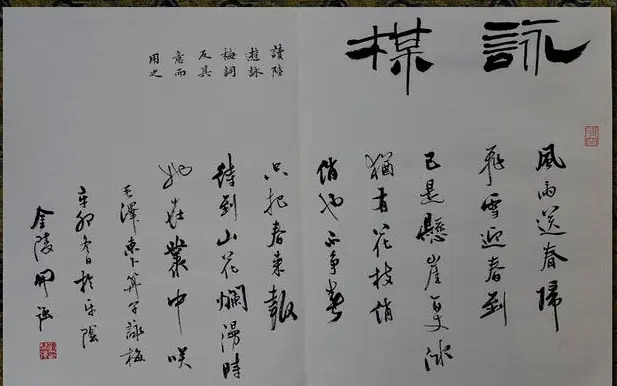 詠楳
讀陸
遊詠
梅詞
反其
意而
用之
風雨送春歸
飛雪迎春到
已是懸崖百丈冰
猶有花枝俏
俏也不爭春
只把春來報
待到山花爛漫時
她在叢中咲
毛澤東卜算子詠梅
辛卯春日於陰
金陵